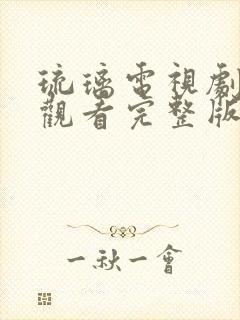 琉璃電視劇
觀看完整版
一秋一會